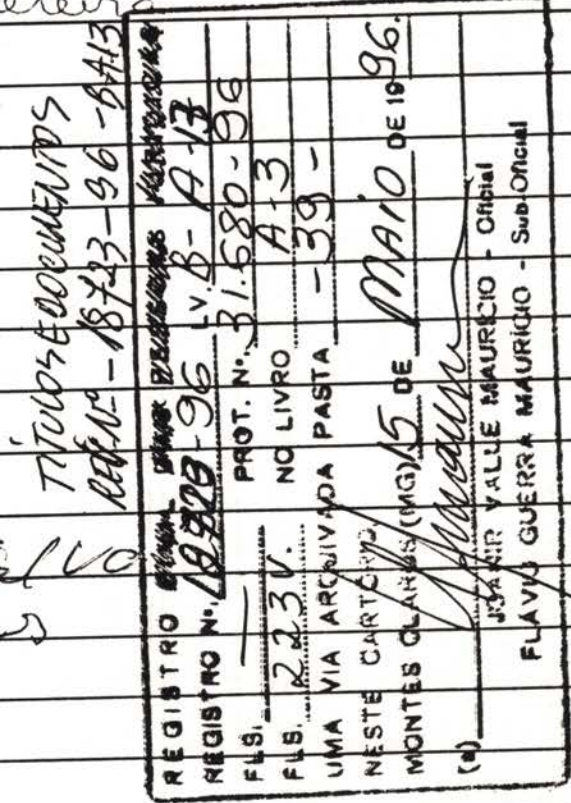 TÍTULOS E DOCUMENTOS
REG. Nº - 18723-96 - BA13
REGISTRO
REGISTRO Nº. 18723-96 LV. B- A-13
FLS. — PROT. Nº. 31.680-96
FLS. 223V. NO LIVRO A-3
UMA VIA ARQUIVADA PASTA -39-
NESTE CARTÓRIO.
MONTES CLAROS (MG) 15 DE MAIO DE 1996.
(a)
JOANIR VALLE MAURICIO - Oficial
FLÁVIO GUERRA MAURÍCIO - Sub-Oficial